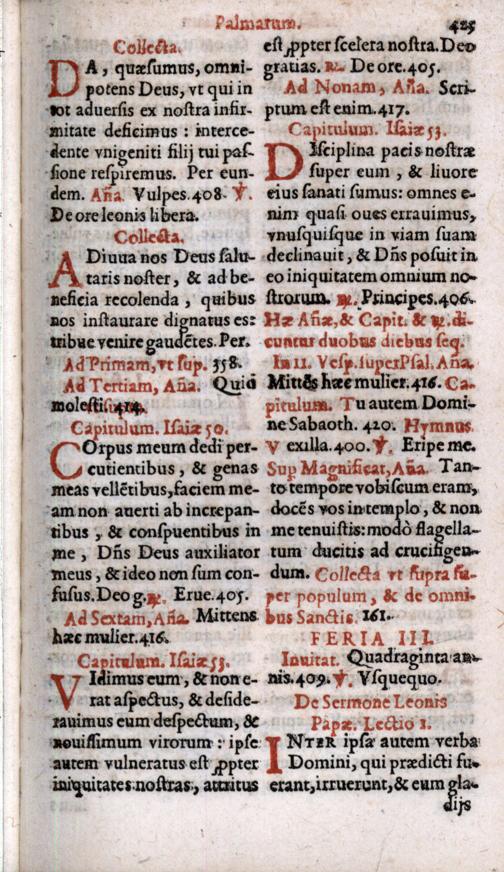 Palmarum. 425
Collecta.
DA, quæsumus, omni-
potens Deus, vt qui in
tot aduersis ex nostra infir-
mitate deficimus : interce-
dente vnigeniti filij tui pas-
sione respiremus. Per eun-
dem. Aña. Vulpes.408. ℣.
De ore leonis libera.
Collecta.
ADiuua nos Deus salu-
taris noster, & ad be-
neficia recolenda, quibus
nos instaurare dignatus es:
tribue venire gaudētes. Per.
Ad Primam, vt sup. 358.
Ad Tertiam, Aña. Quid
molesti. 414.
Capitulum. Isaiæ 50.
COrpus meum dedi per-
cutientibus, & genas
meas vellētibus, faciem me-
am non auerti ab increpan-
tibus, & conspuentibus in
me, Dñs Deus auxiliator
meus, & ideo non sum con-
fusus. Deo g. ℟. Erue.405.
Ad Sextam, Aña. Mittens
hæc mulier.416.
Capitulum. Isaiæ 53.
VIdimus eum, & non e-
rat aspectus, & deside-
rauimus eum despectum, &
nouissimum virorum : ipse
autem vulneratus est ꝓpter
iniquitates nostras, attritus
est ꝓpter scelera nostra. Deo
gratias. ℟. De ore.405.
Ad Nonam, Aña. Scri-
ptum est enim.417.
Capitulum. Isaiæ 53.
DIsciplina pacis nostræ
super eum, & liuore
eius sanati sumus: omnes e-
nim quasi oues errauimus,
vnusquisque in viam suam
declinauit, & Dñs posuit in
eo iniquitatem omnium no-
strorum. ℟. Principes.406.
Hæ Añæ, & Capit. & ℟. di-
cuntur duobus diebus seq.
In II. Vesp. super Psal. Aña.
Mittēs hæc mulier.416. Ca-
pitulum. Tu autem Domi-
ne Sabaoth. 420. Hymnus.
Vexilla.400. ℣. Eripe me.
Sup Magnificat, Aña. Tan-
to tempore vobiscum eram,
docēs vos in templo, & non
me tenuistis: modò flagella-
tum ducitis ad crucifigen-
dum. Collecta vt supra su-
per populum, & de omni-
bus Sanctis. 161.
FERIA III.
Inuitat. Quadraginta an-
nis.409. ℣. Vsquequo.
De Sermone Leonis
Papæ. Lectio 1.
INTER ipsa autem verba
Domini, qui prædicti fu-
erant, irruerunt, & eum gla-
dijs